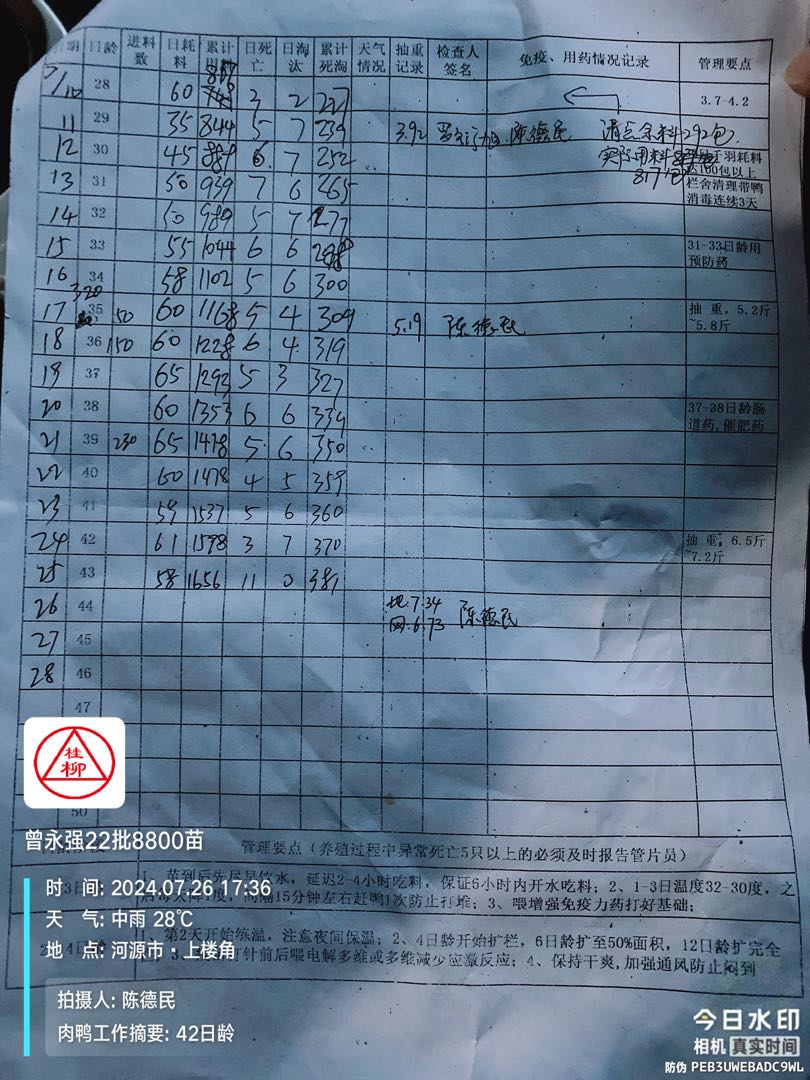 日期 日龄 进料数 日耗料 累计用料 日死亡 日淘汰 累计死淘 天气情况 抽重记录 检查人签名 免疫、用药情况记录 管理要点
7/10 28 60 3 2 227 3.7-4.2
11 29 35 844 5 7 239 3.92 陈德民 清点余料292包.
12 30 45 889 6 7 252 实际用料 817包 羽耗料
达160包以上
13 31 50 939 7 6 265 栏舍清理带鸭
消毒连续3天
14 32 50 989 5 7 277
15 33 55 1044 6 6 31-33日龄用
预防药
16 34 58 1102 5 6 300
320
17 35 50 60 1168 5 4 309 5.19 陈德民 抽重,5.2斤
~5.8斤
18 36 150 60 1228 6 4 319
19 37 65 1293 5 3 327
20 38 60 1353 6 6 339 37-38日龄肠
道药,催肥药
21 39 230 65 1418 5 6 350
22 40 60 1478 4 5 359
23 41 59 1537 5 6 360
24 42 61 1598 3 7 370 抽重,6.5斤
~7.2斤
25 43 58 1656 11 0 381
26 44 地:7.34 陈德民
网:6.73
27 45
28 46
47
50
桂柳
曾永强22批8800苗
管理要点(养殖过程中异常死亡5只以上的必须及时报告管片员)
1、苗到后先尽早饮水,延迟2-4小时吃料,保证6小时内开水吃料;2、1-3日温度32-30度,之
后每天降1度,间隔15分钟左右赶鸭1次防止打堆;3、喂增强免疫力药打好基础;
1、第2天开始练温,注意夜间保温;2、4日龄开始扩栏,6日龄扩至50%面积,12日龄扩完全
打针前后喂电解多维或多维减少应激反应;4、保持干爽,加强通风防止闷到
时 间: 2024.07.26 17:36
天 气: 中雨 28℃
地 点: 河源市·上楼角
拍摄人: 陈德民
肉鸭工作摘要: 42日龄
今日水印
相机 真实时间
防伪 PEB3UWEBADC9WL